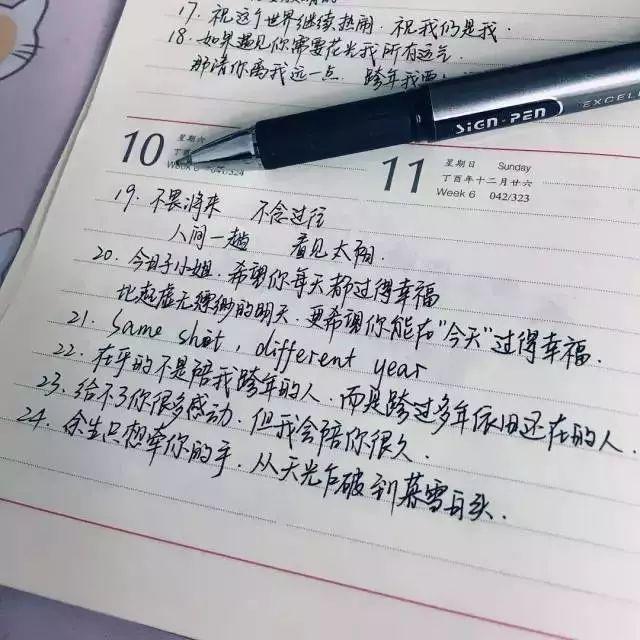 17. 祝这个世界继续热闹. 祝我仍是我.
18. 如果遇见你需要花光我所有运气
那请你离我远一点. 跨年我要
SIGN·PEN EXCELL
10 星期六
Week 6 041/324
11 星期日 Sunday
丁酉年十二月廿六
Week 6 042/323
19. 不畏将来 不念过往
人间一趟 看见太阳.
20. 今日子小姐. 希望你每天都过得幸福
比起虚无缥缈的明天. 更希望你能在"今天"过得幸福.
21. Same shit, different year
22. 在乎的不是陪我跨年的人. 而是跨过多年依旧还在的人.
23. 给不了你很多感动. 但我会陪你很久.
24. 余生只想牵你的手. 从天光乍破到暮雪白头.